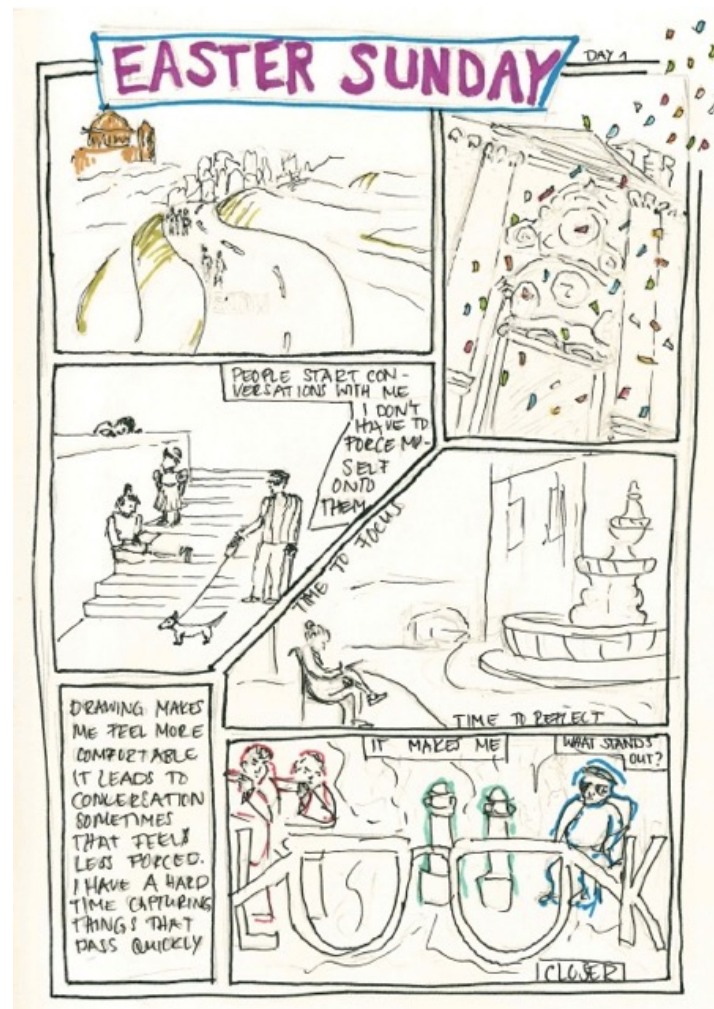 EASTER SUNDAY
DAY 1
PEOPLE START CON-
VERSATIONS WITH ME
I DON'T
HAVE TO
FORCE MY-
SELF
ONTO
THEM
TIME TO FOCUS
TIME TO REFLECT
DRAWING MAKES
ME FEEL MORE
COMFORTABLE
IT LEADS TO
CONVERSATION
SOMETIMES
THAT FEELS
LESS FORCED.
I HAVE A HARD
TIME CAPTURING
THINGS THAT
PASS QUICKLY
IT MAKES ME
WHAT STANDS
OUT?
LOOK
CLOSER